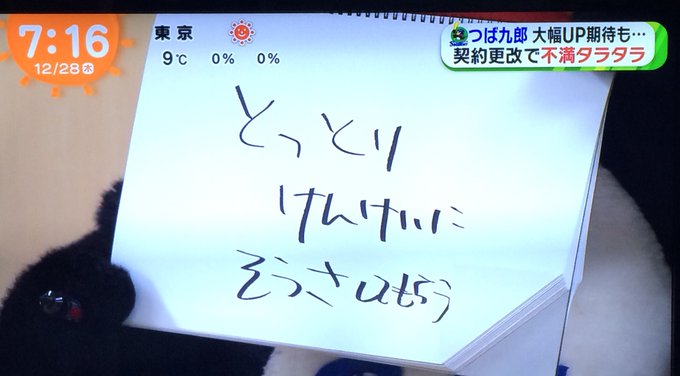 7:16
12/28木
東京
9℃ 0% 0%
つば九郎 大幅UP期待も…
契約更改で不満タラタラ
とっとり
けんけいに
そうさいもらう